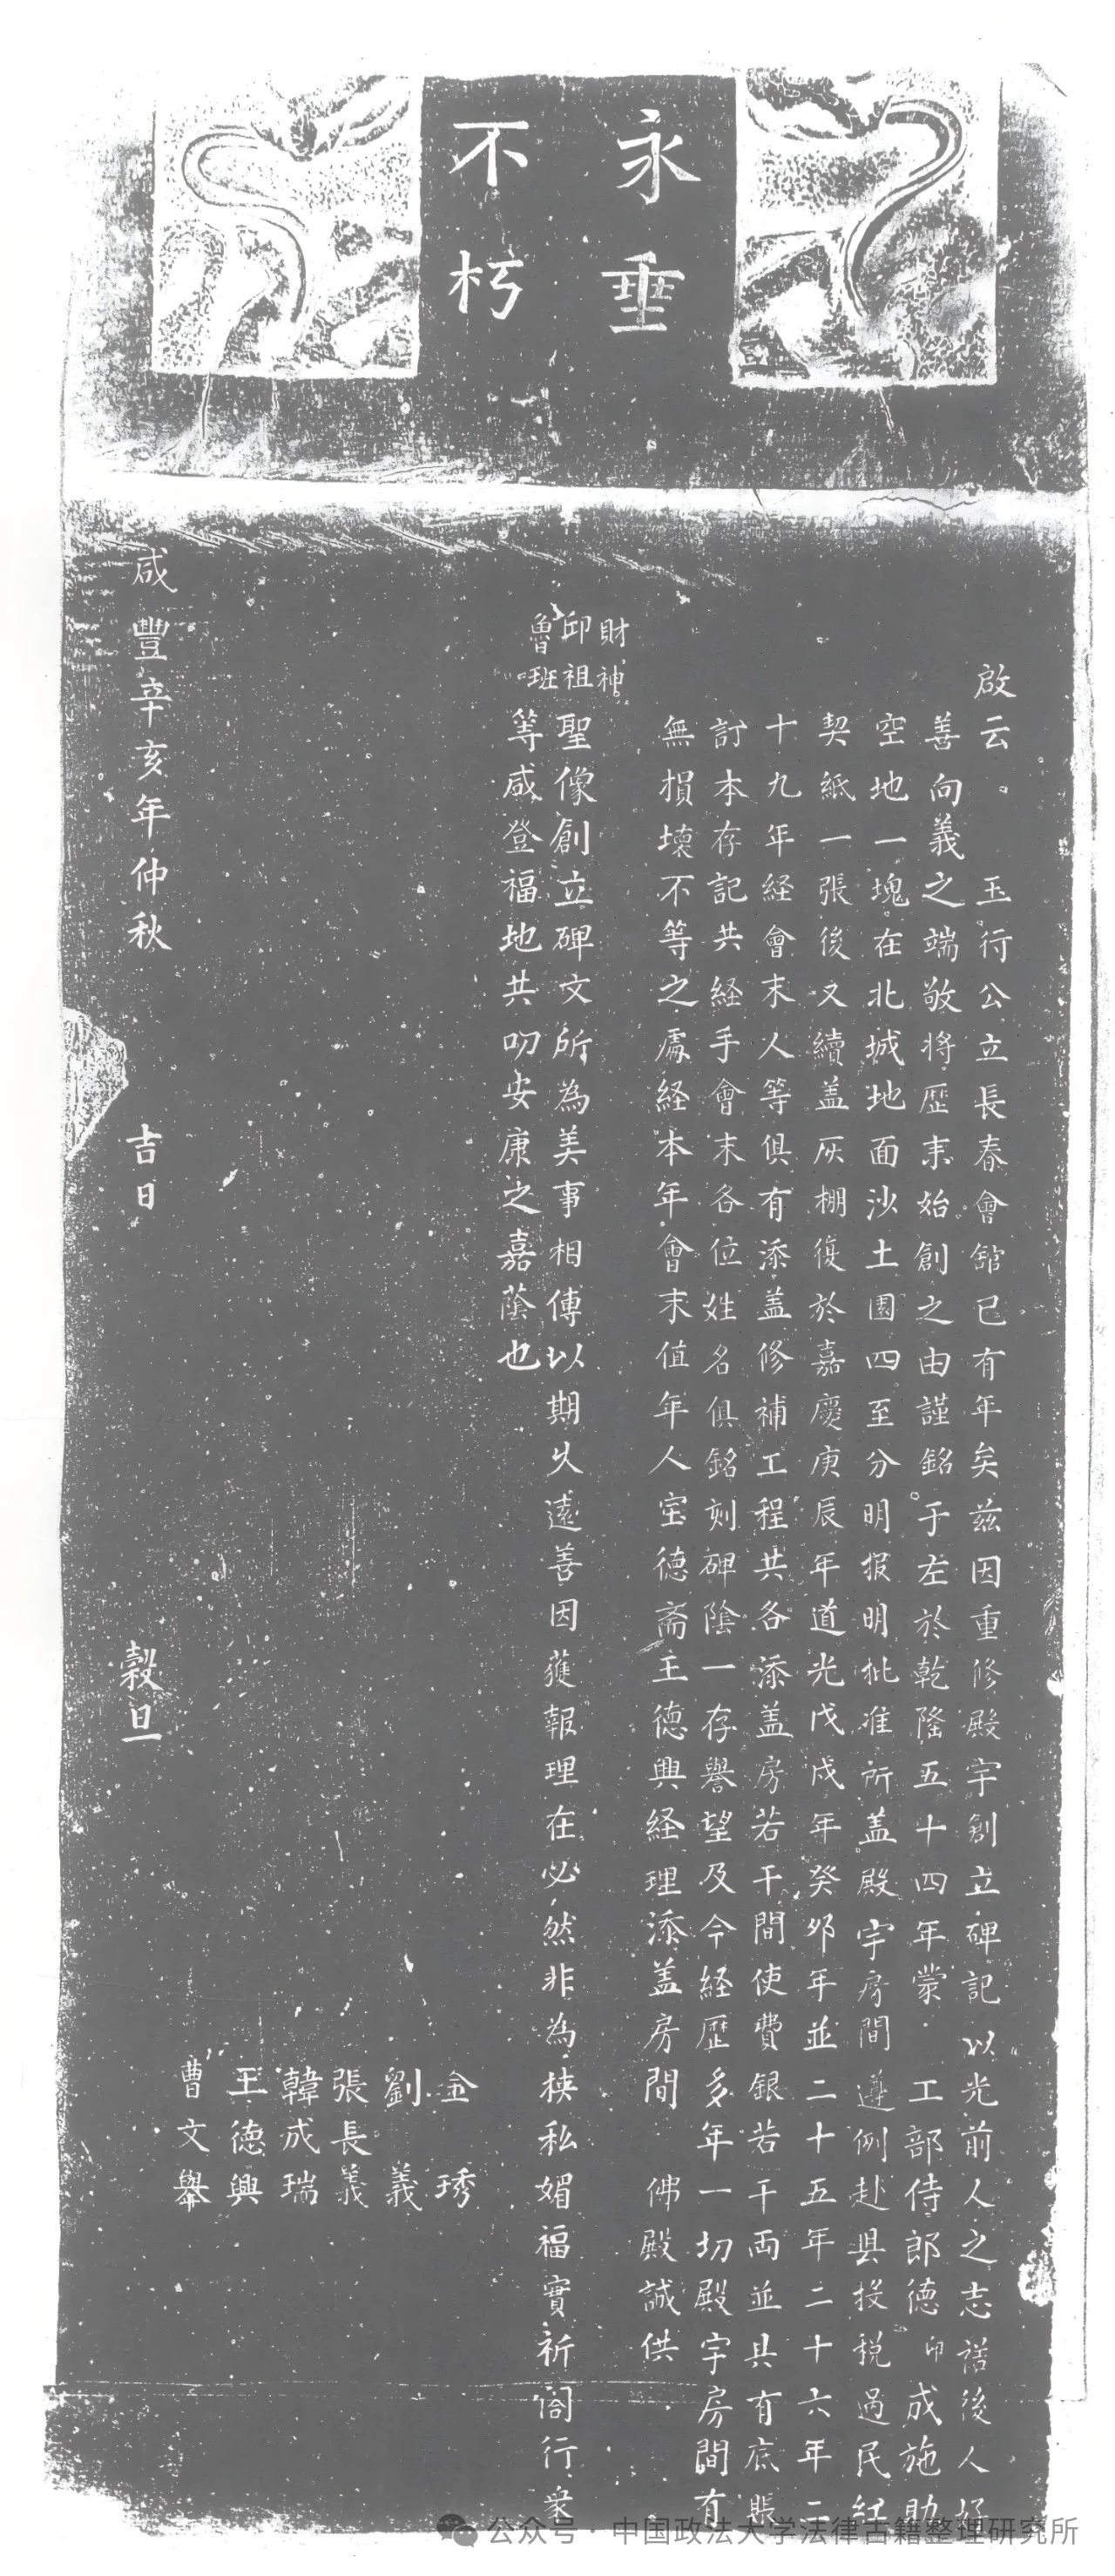 永垂
不朽
啟云。玉行公立長春會館已有年矣茲因重修殿宇創立碑記以光前人之志諸後人好
善向義之端敬將歷來始創之由謹銘于左於乾隆五十四年蒙工部侍郎德印成施助
空地一塊在北城地面沙土園四至分明报明批准所盖殿宇房間遵例赴縣投稅過民紅
契紙一張後又續盖灰棚復於嘉慶庚辰年道光戊戌年癸卯年並二十五年二十六年二
十九年経會末人等俱有添盖修補工程共各添盖房若干間使費銀若干両並具有底賬
訂本存記共経手會末各位姓名俱銘刻碑陰一存譽望及今経歷多年一切殿宇房間有
無損壞不等之處経本年會末值年人宝德斋王德興経理添盖房間佛殿誠供
財神
邱祖
魯班
聖像創立碑文所為美事相傳以期久遠善因獲報理在必然非為挾私媚福實祈閤行衆
等咸登福地共叨安康之嘉蔭也
金琇
劉義
張長義
韓成瑞
王德興
曹文舉
咸豐辛亥年仲秋吉日穀旦
公众号·中国政法大学法律古籍整理研究所